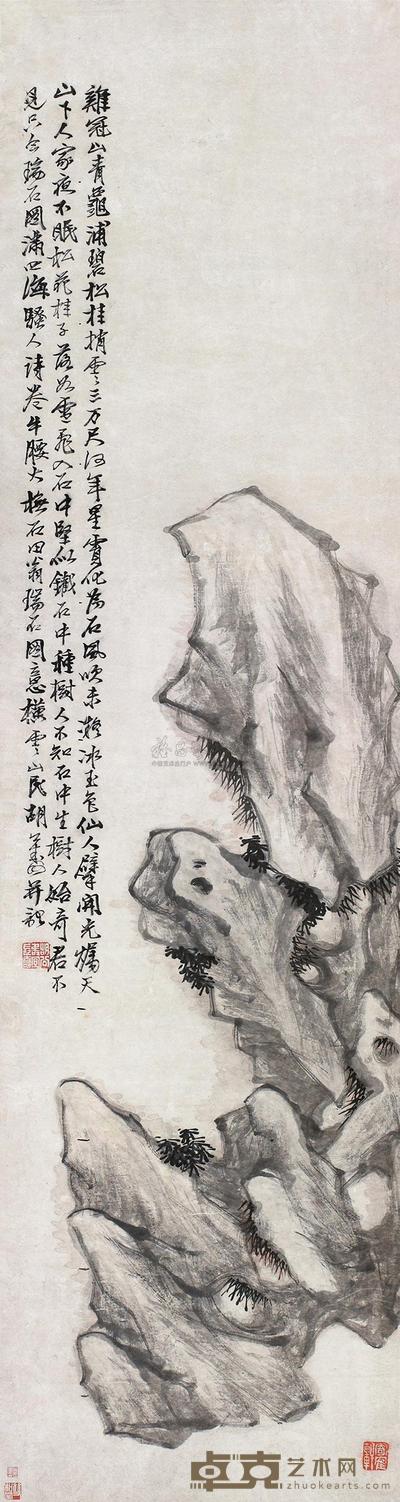 雞冠山青鼉浦碧松桂捎雲三万尺何年星實化為石風吹未凝冰玉色仙人擘開光燭天一
山下人家夜不眠松花桂子落如雪飛入石中堅似鐵石中種樹人不知石中生樹人始奇君不
見只今瑞石圖滿四海騷人詩卷牛腰大橅石田翁瑞石圖意橫雲山民胡公壽并記
卓克艺术网
www.zhuokearts.com